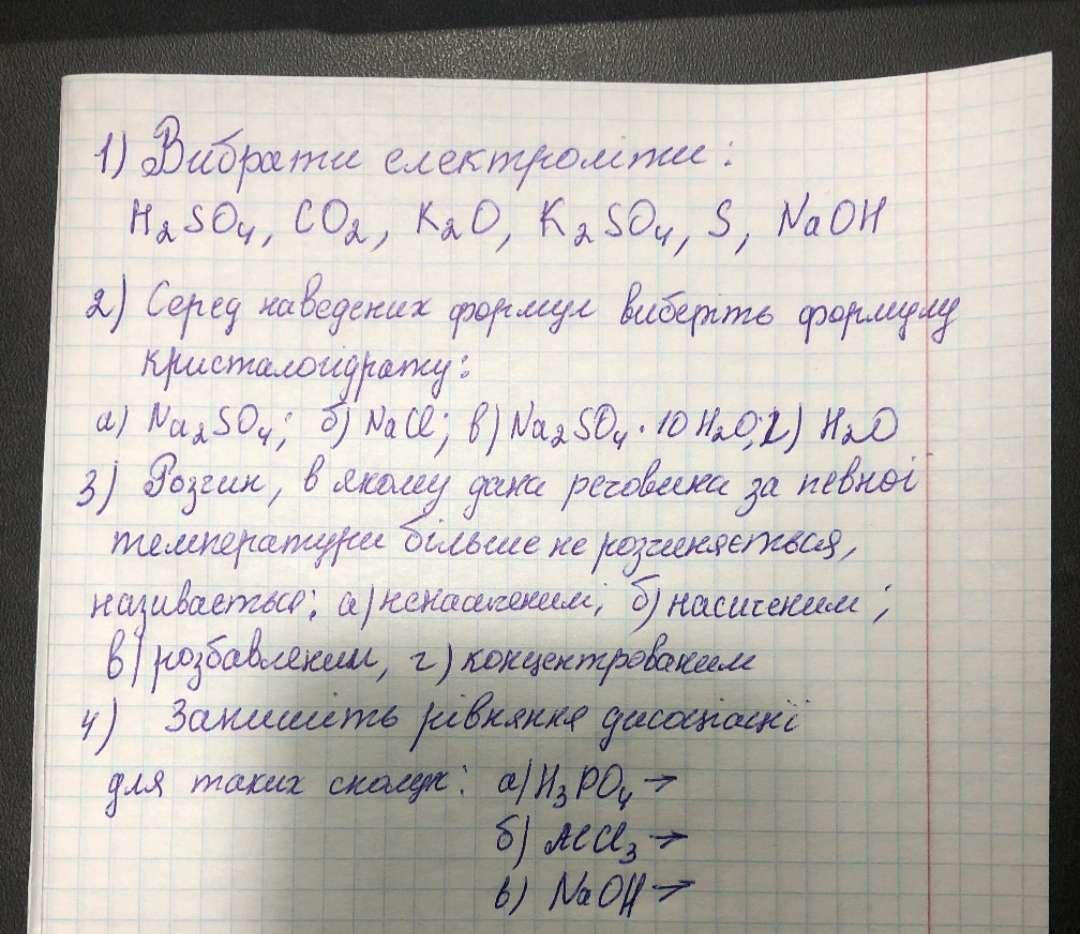 1) Вибрати електроліти:
H₂SO₄, CO₂, K₂O, K₂SO₄, S, NaOH
2) Серед наведених формул виберіть формулу
кристалогідрату:
а) Na₂SO₄; б) NaCl; в) Na₂SO₄ · 10 H₂O; г) H₂O
3) Розчин, в якому дана речовина за певної
температури більше не розчиняється,
називається: а) ненасиченим, б) насиченим;
в) розбавленим, г) концентрованим
4) Запишіть рівняння дисоціації
для таких сполук: а) H₃PO₄ →
б) AlCl₃ →
в) NaOH →